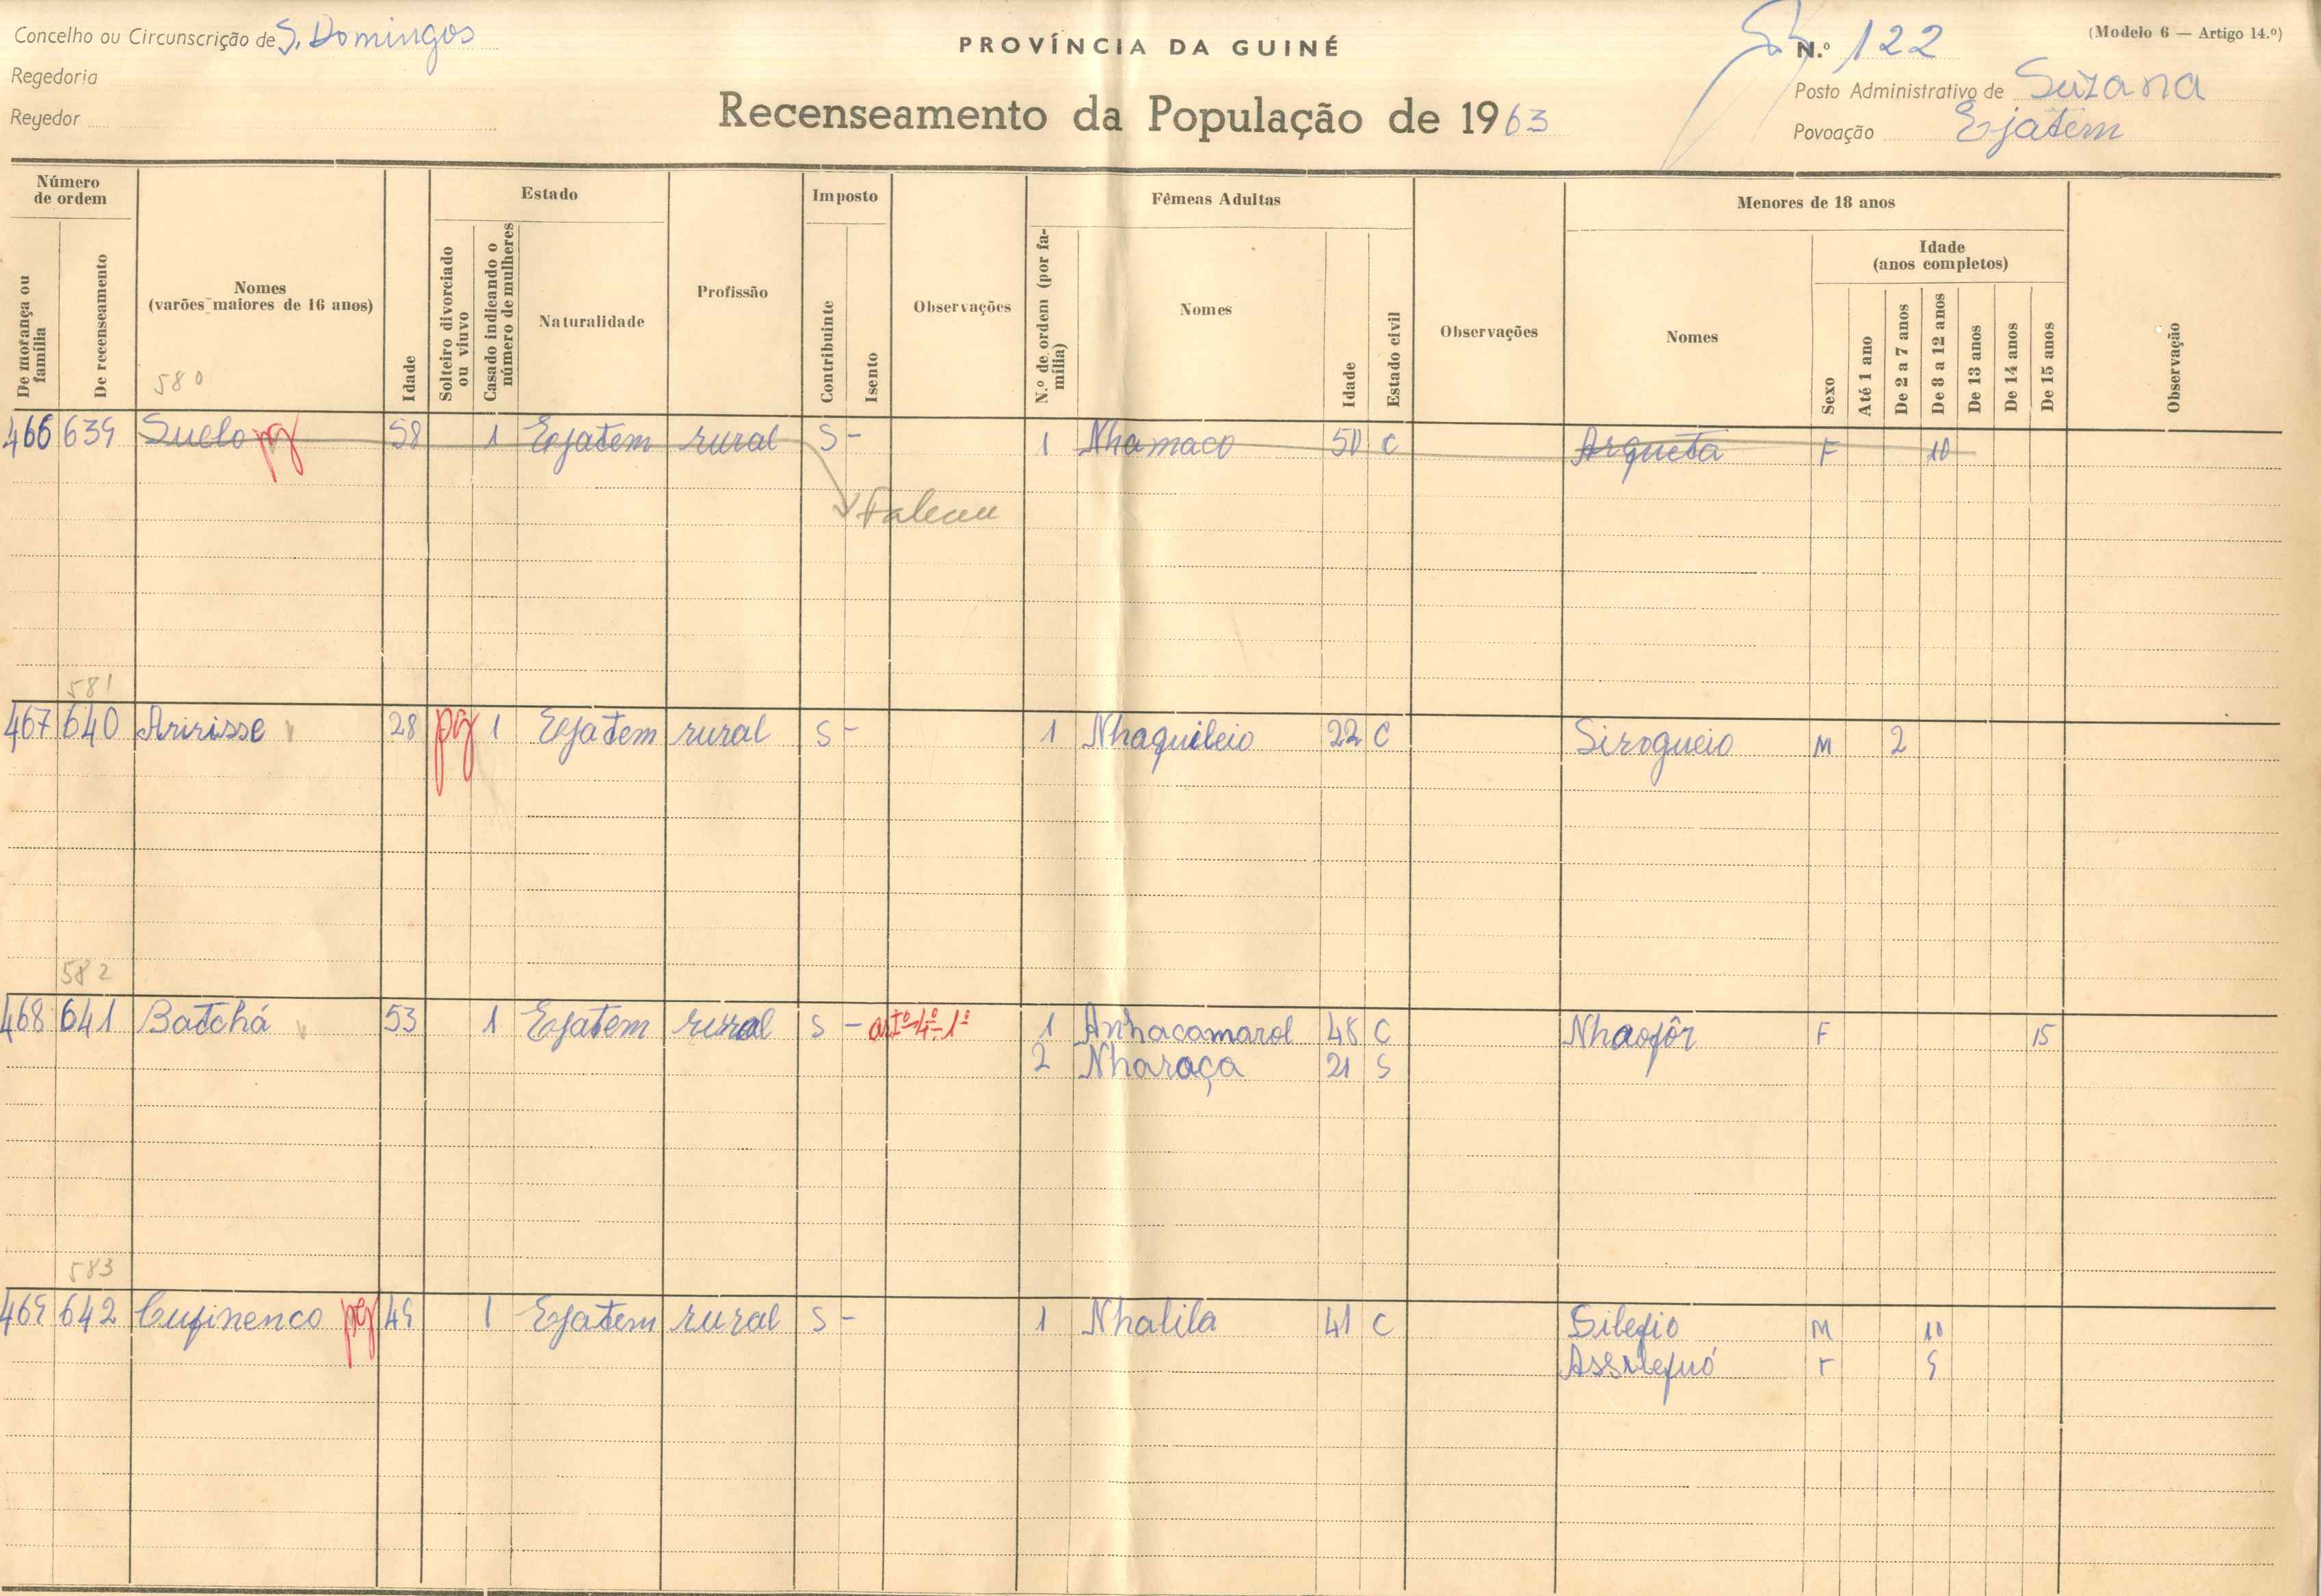 Concelho ou Circunscrição de S. Domingos
Regedoria
Reyedor
PROVÍNCIA DA GUINÉ
Recenseamento da População de 1963
(Modelo 6 — Artigo 14.º)
N.º 122
Posto Administrativo de Suzana
Povoação Ejatem
Número de ordem
De morança ou família
De recenseamento
Nomes
(varões maiores de 16 anos)
580
Idade
Estado
Solteiro divorciado ou viuvo
Casado indicando o número de mulheres
Naturalidade
Profissão
Imposto
Contribuinte
Isento
Observações
Fêmeas Adultas
N.º de ordem (por família)
Nomes
Idade
Estado civil
Observações
Menores de 18 anos
Nomes
Sexo
Idade
(anos completos)
Até 1 ano
De 2 a 7 anos
De 8 a 12 anos
De 13 anos
De 14 anos
De 15 anos
Observação
466 639 Suelo pg 58 1 Ejatem rural S - 1 Nhamaco 50 C Arqueta F 10
Faleceu
581
467 640 Aririsse 28 pg 1 Ejatem rural S - 1 Nhaquileio 22 C Sirogueio M 2
582
468 641 Batchá 53 1 Ejatem rural S - artº 4º 1º 1 Anhacamarol 48 C Nhaofôr F 15
2 Nharaça 21 S
583
469 642 Cufinenco pg 49 1 Ejatem rural S - 1 Nhalila 41 C Silefio M 10
F 9